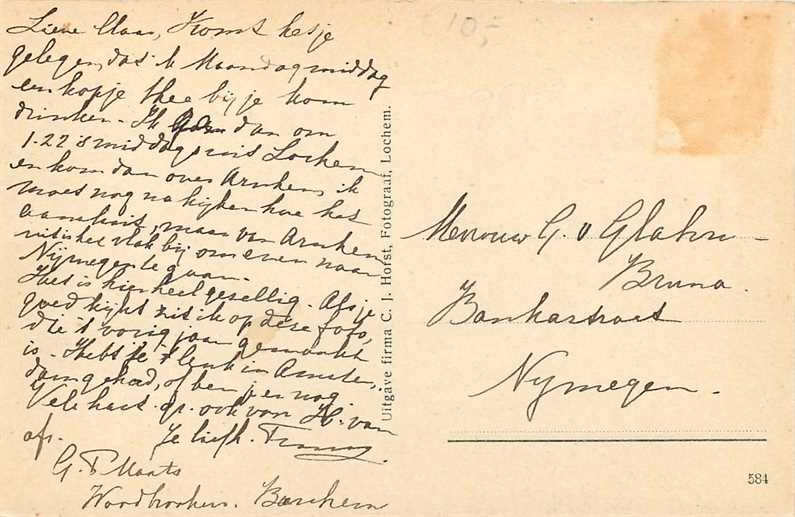 Lieve Claar, Komt het je
gelegen, dat ik Maandagmiddag
een kopje thee bij je kom
drinken - Ik dan om
1.22 's middags uit Lochem
en kom dan over Arnhem, ik
moet nog na kijken hoe het
aansluit, maar van Arnhem
uit is het vlak bij om even naar
Nijmegen te gaan.
Het is hier heel gezellig. Als je
goed kijkt zit ik op deze foto,
die 't vorig jaar gemaakt
is. Hebt je 't leuk in Amster-
dam gehad, of ben je er nog.
Vele hart. gr. ook van H. van
je liefh.
G. P. Maats
Barchem
Uitgave firma C. J. Horst, Fotograaf, Lochem.
10,-
Mevrouw G. v Glahn -
Bruna.
Bankastraat
Nijmegen.
584